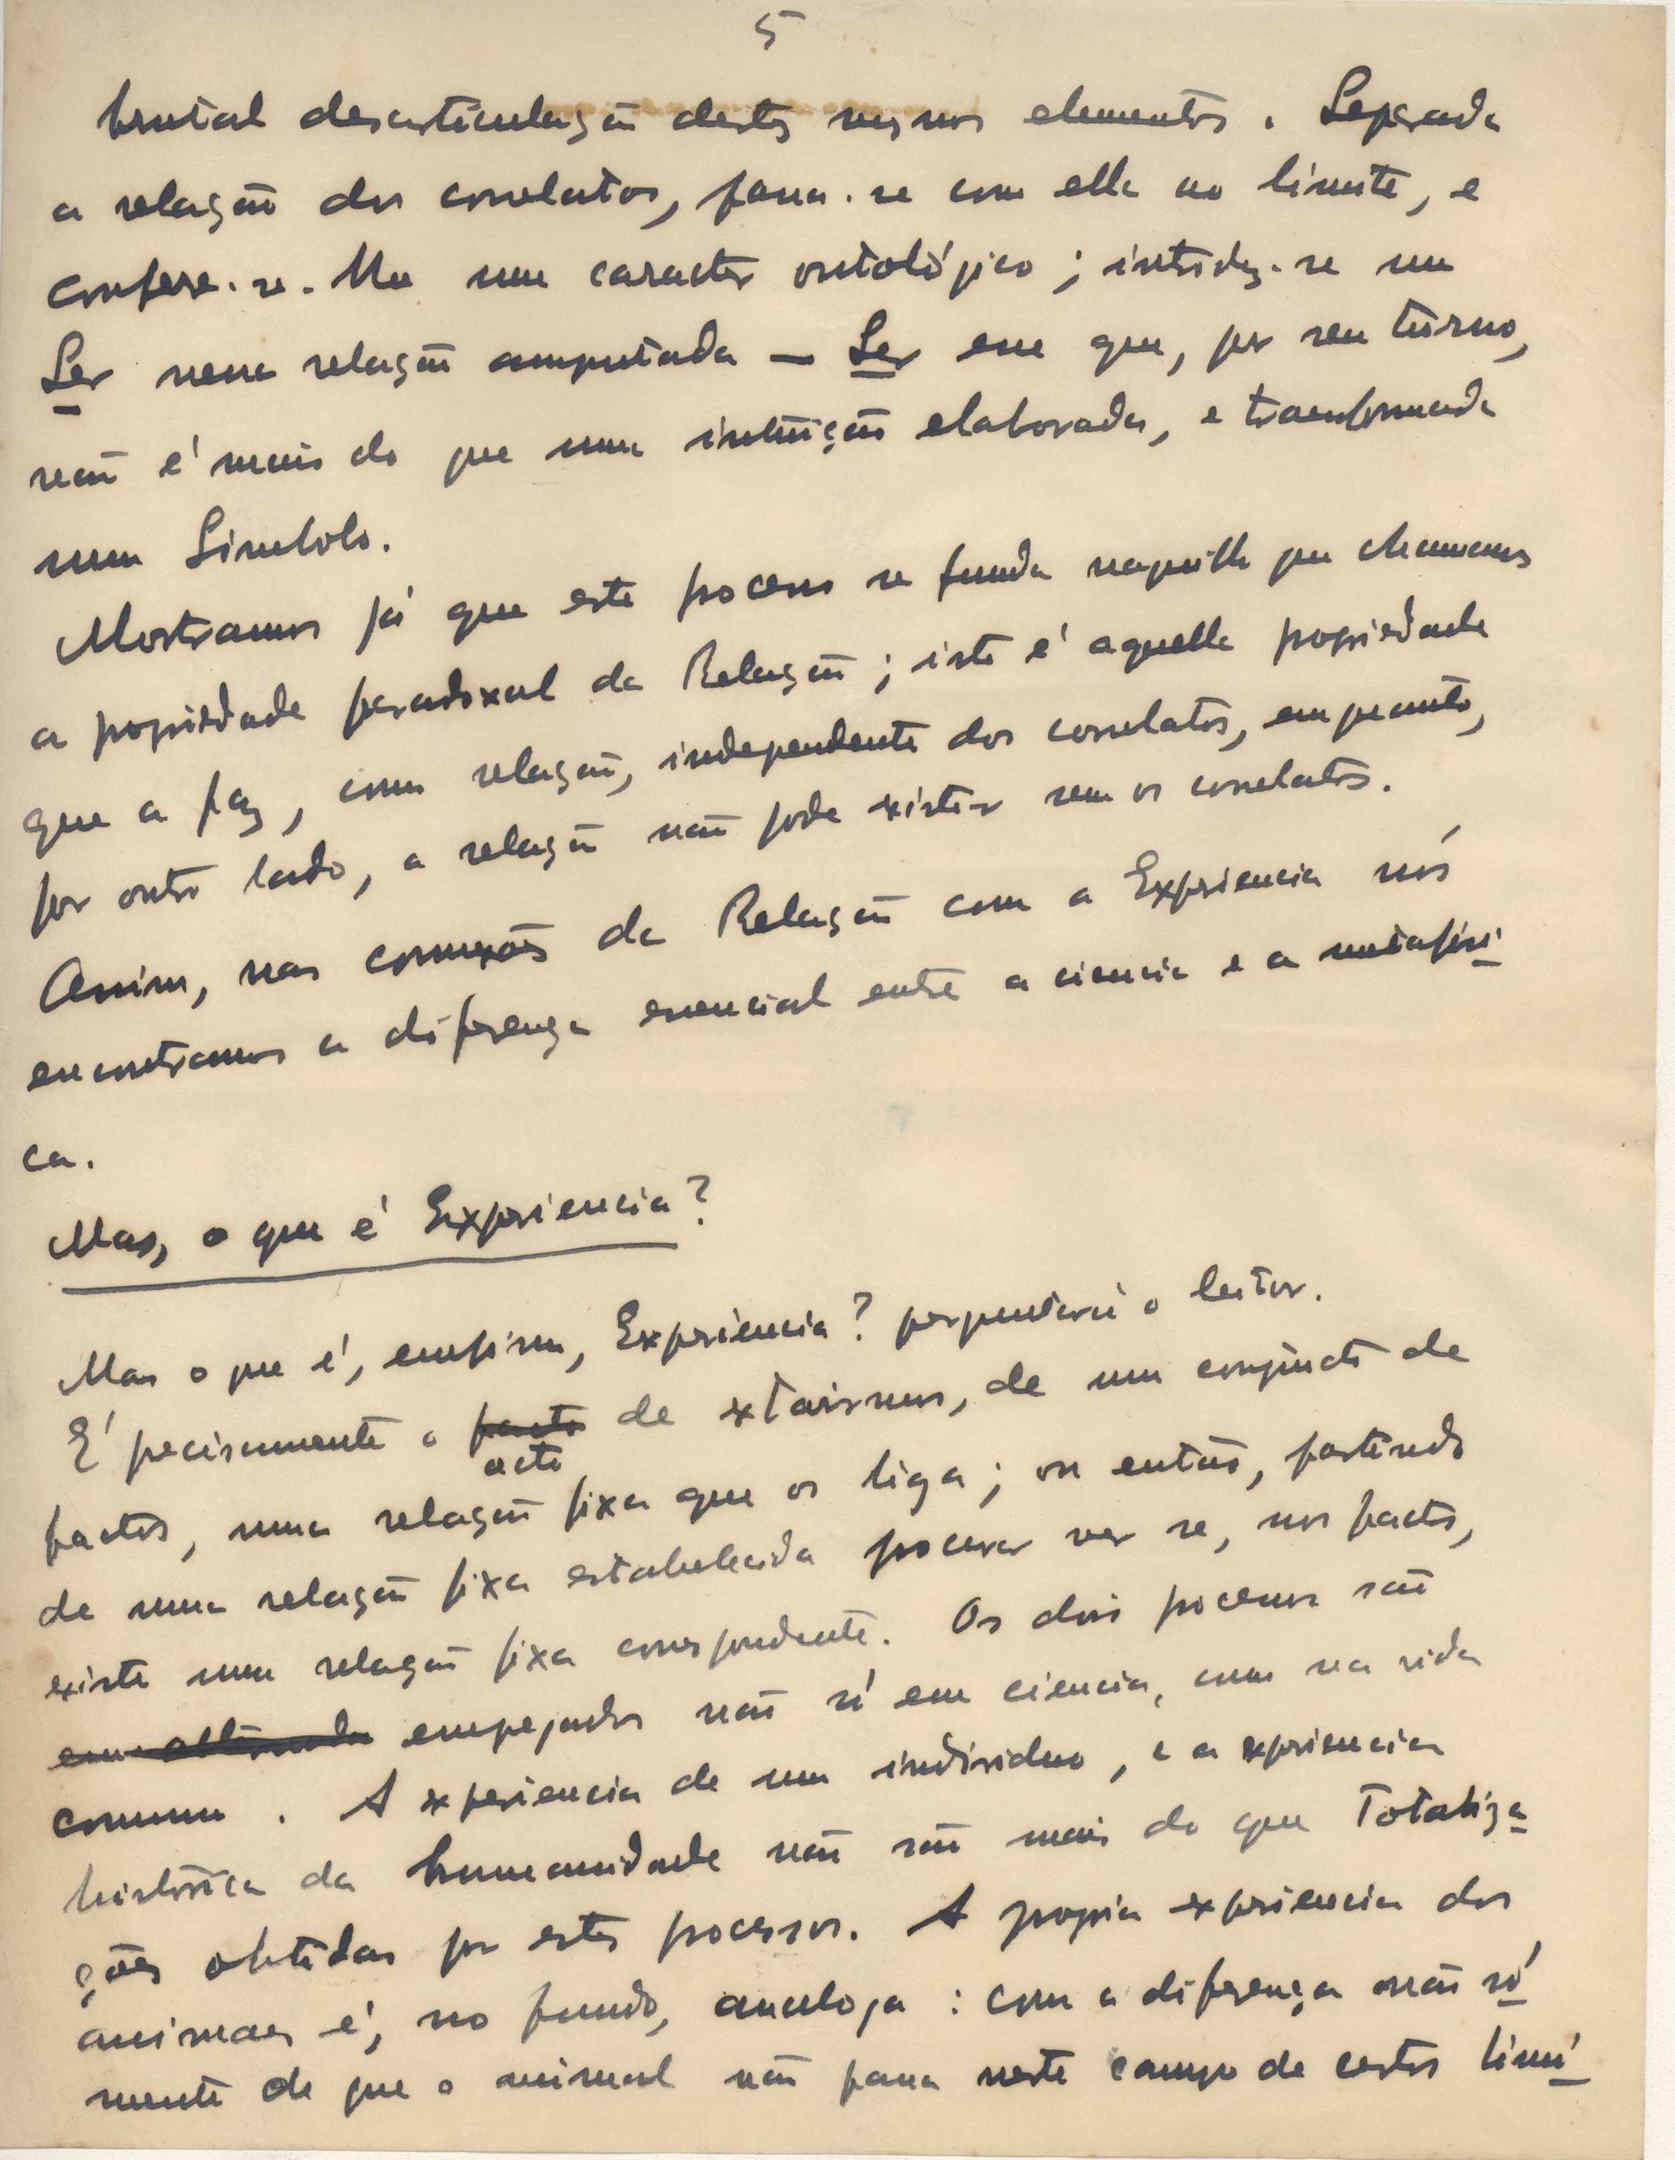 5
brutal desarticulação destes mesmos elementos. Separada
a relação dos correlatos, passa-se com ella ao limite, e
confere-se-lhe um caracter ontológico; introduz-se um
Ser nessa relação amputada — Ser esse que, por seu turno,
não é mais do que uma intuição elaborada, e transformada
num Simbolo.
Mostramos já que este processo se funda naquillo que chamamos
a propriedade paradoxal da Relação; isto é aquella propriedade
que a faz, como relação, independente dos correlatos, emquanto,
por outro lado, a relação não pode existir sem os correlatos.
Assim, nas connexões da Relação com a Experiencia nós
encontramos a diferença essencial entre a ciencia e a metafisi
ca.
Mas, o que é Experiencia?
Mas o que é, emfim, Experiencia? perguntará o leitor.
É precisamente o facto de extairmos, de um conjuncto de
acto
factos, uma relação fixa que os liga; ou então, partindo
de uma relação fixa estabelecida procurar ver se, nos factos,
existe uma relação fixa correspondente. Os dois processos são
empregados não só em ciencia, como na vida
commum. A experiencia de um individuo, e a experiencia
histórica da humanidade não são mais do que Totaliza
ções obtidas por estes processos. A propria experiencia dos
animaes é, no fundo, analoga: com a diferença não só
mente de que o animal não passa neste campo de certos limi